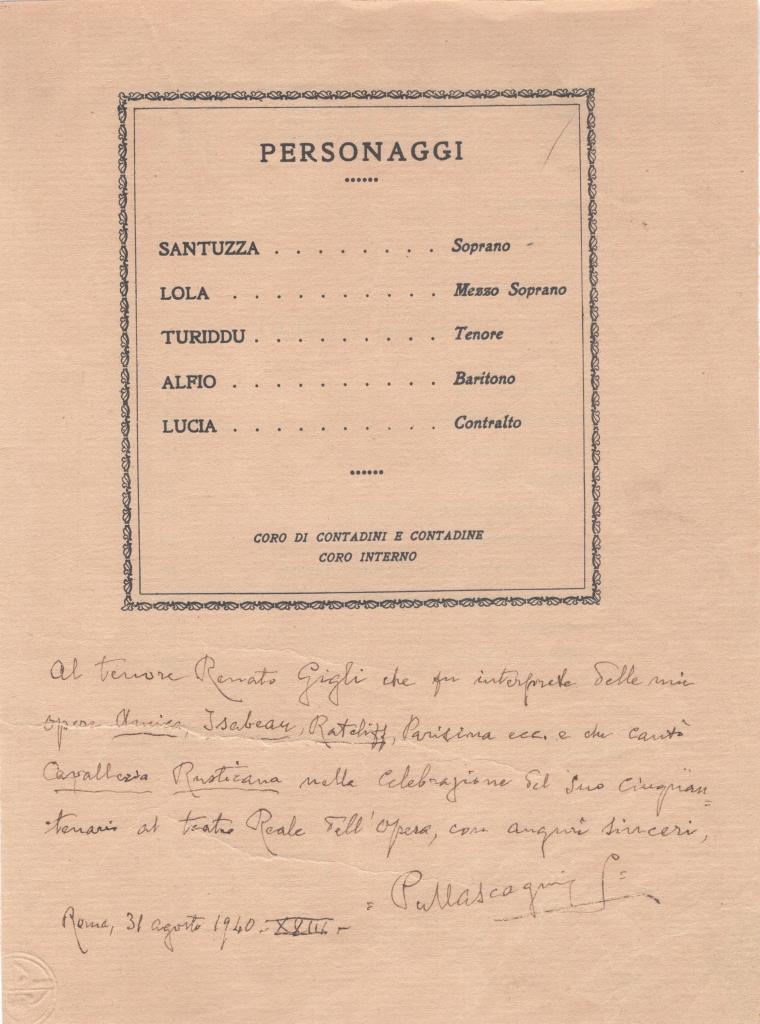 PERSONAGGI
SANTUZZA . . . . . . . . Soprano
LOLA . . . . . . . . . . Mezzo Soprano
TURIDDU . . . . . . . . . Tenore
ALFIO . . . . . . . . . . Baritono
LUCIA . . . . . . . . . . Contralto
CORO DI CONTADINI E CONTADINE
CORO INTERNO
Al tenore Renato Gigli che fu interprete delle mie
opere Amica, Isabeau, Ratcliff, Parisina ecc. e che cantò
Cavalleria Rusticana nella Celebrazione del suo Cinquan=
tenario al teatro Reale dell'Opera, con auguri sinceri,
= P. Mascagni =
Roma, 31 agosto 1940.